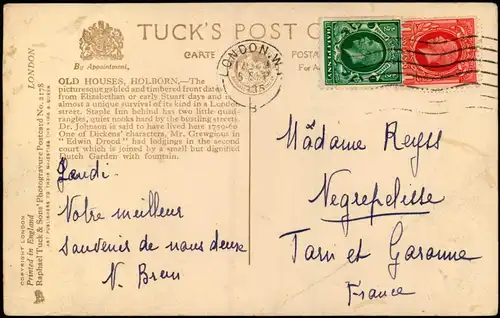 TUCK'S POST C
CARTE POSTA
By Appointment.
For A
LONDON.W.
1935
HALFPENNY
OLD HOUSES, HOLBORN.—The
picturesque gabled and timbered front dates
from Elizabethan or early Stuart days and is
almost a unique survival of its kind in a London
street. Staple Inn behind has two little quad-
rangles, quiet nooks hard by the bustling streets.
Dr. Johnson is said to have lived here 1759-60
One of Dickens' characters, Mr. Grewgious in
"Edwin Drood" had lodgings in the second
court which is joined by a small but dignified
Dutch Garden with fountain.
LONDON
Raphael Tuck & Sons' Photogravure Postcard No. 2178
ART PUBLISHERS TO THEIR MAJESTIES THE KING
Printed in England
COPYRIGHT LONDON
Jeudi.
Notre meilleur
souvenir de nous deux
N. Brun
Madame Reyss
Negrepelisse
Tarn et Garonne
France